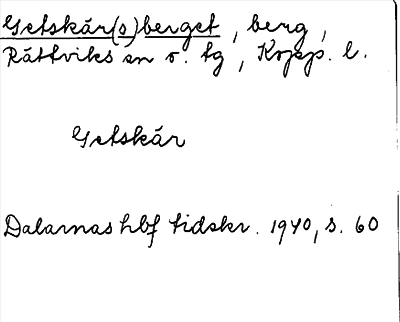 Getskär(s)berget, berg,
Rättviks sn o. tg, Kopp. l.
Getskär
Dalarnas hbf tidskr. 1940, s. 60